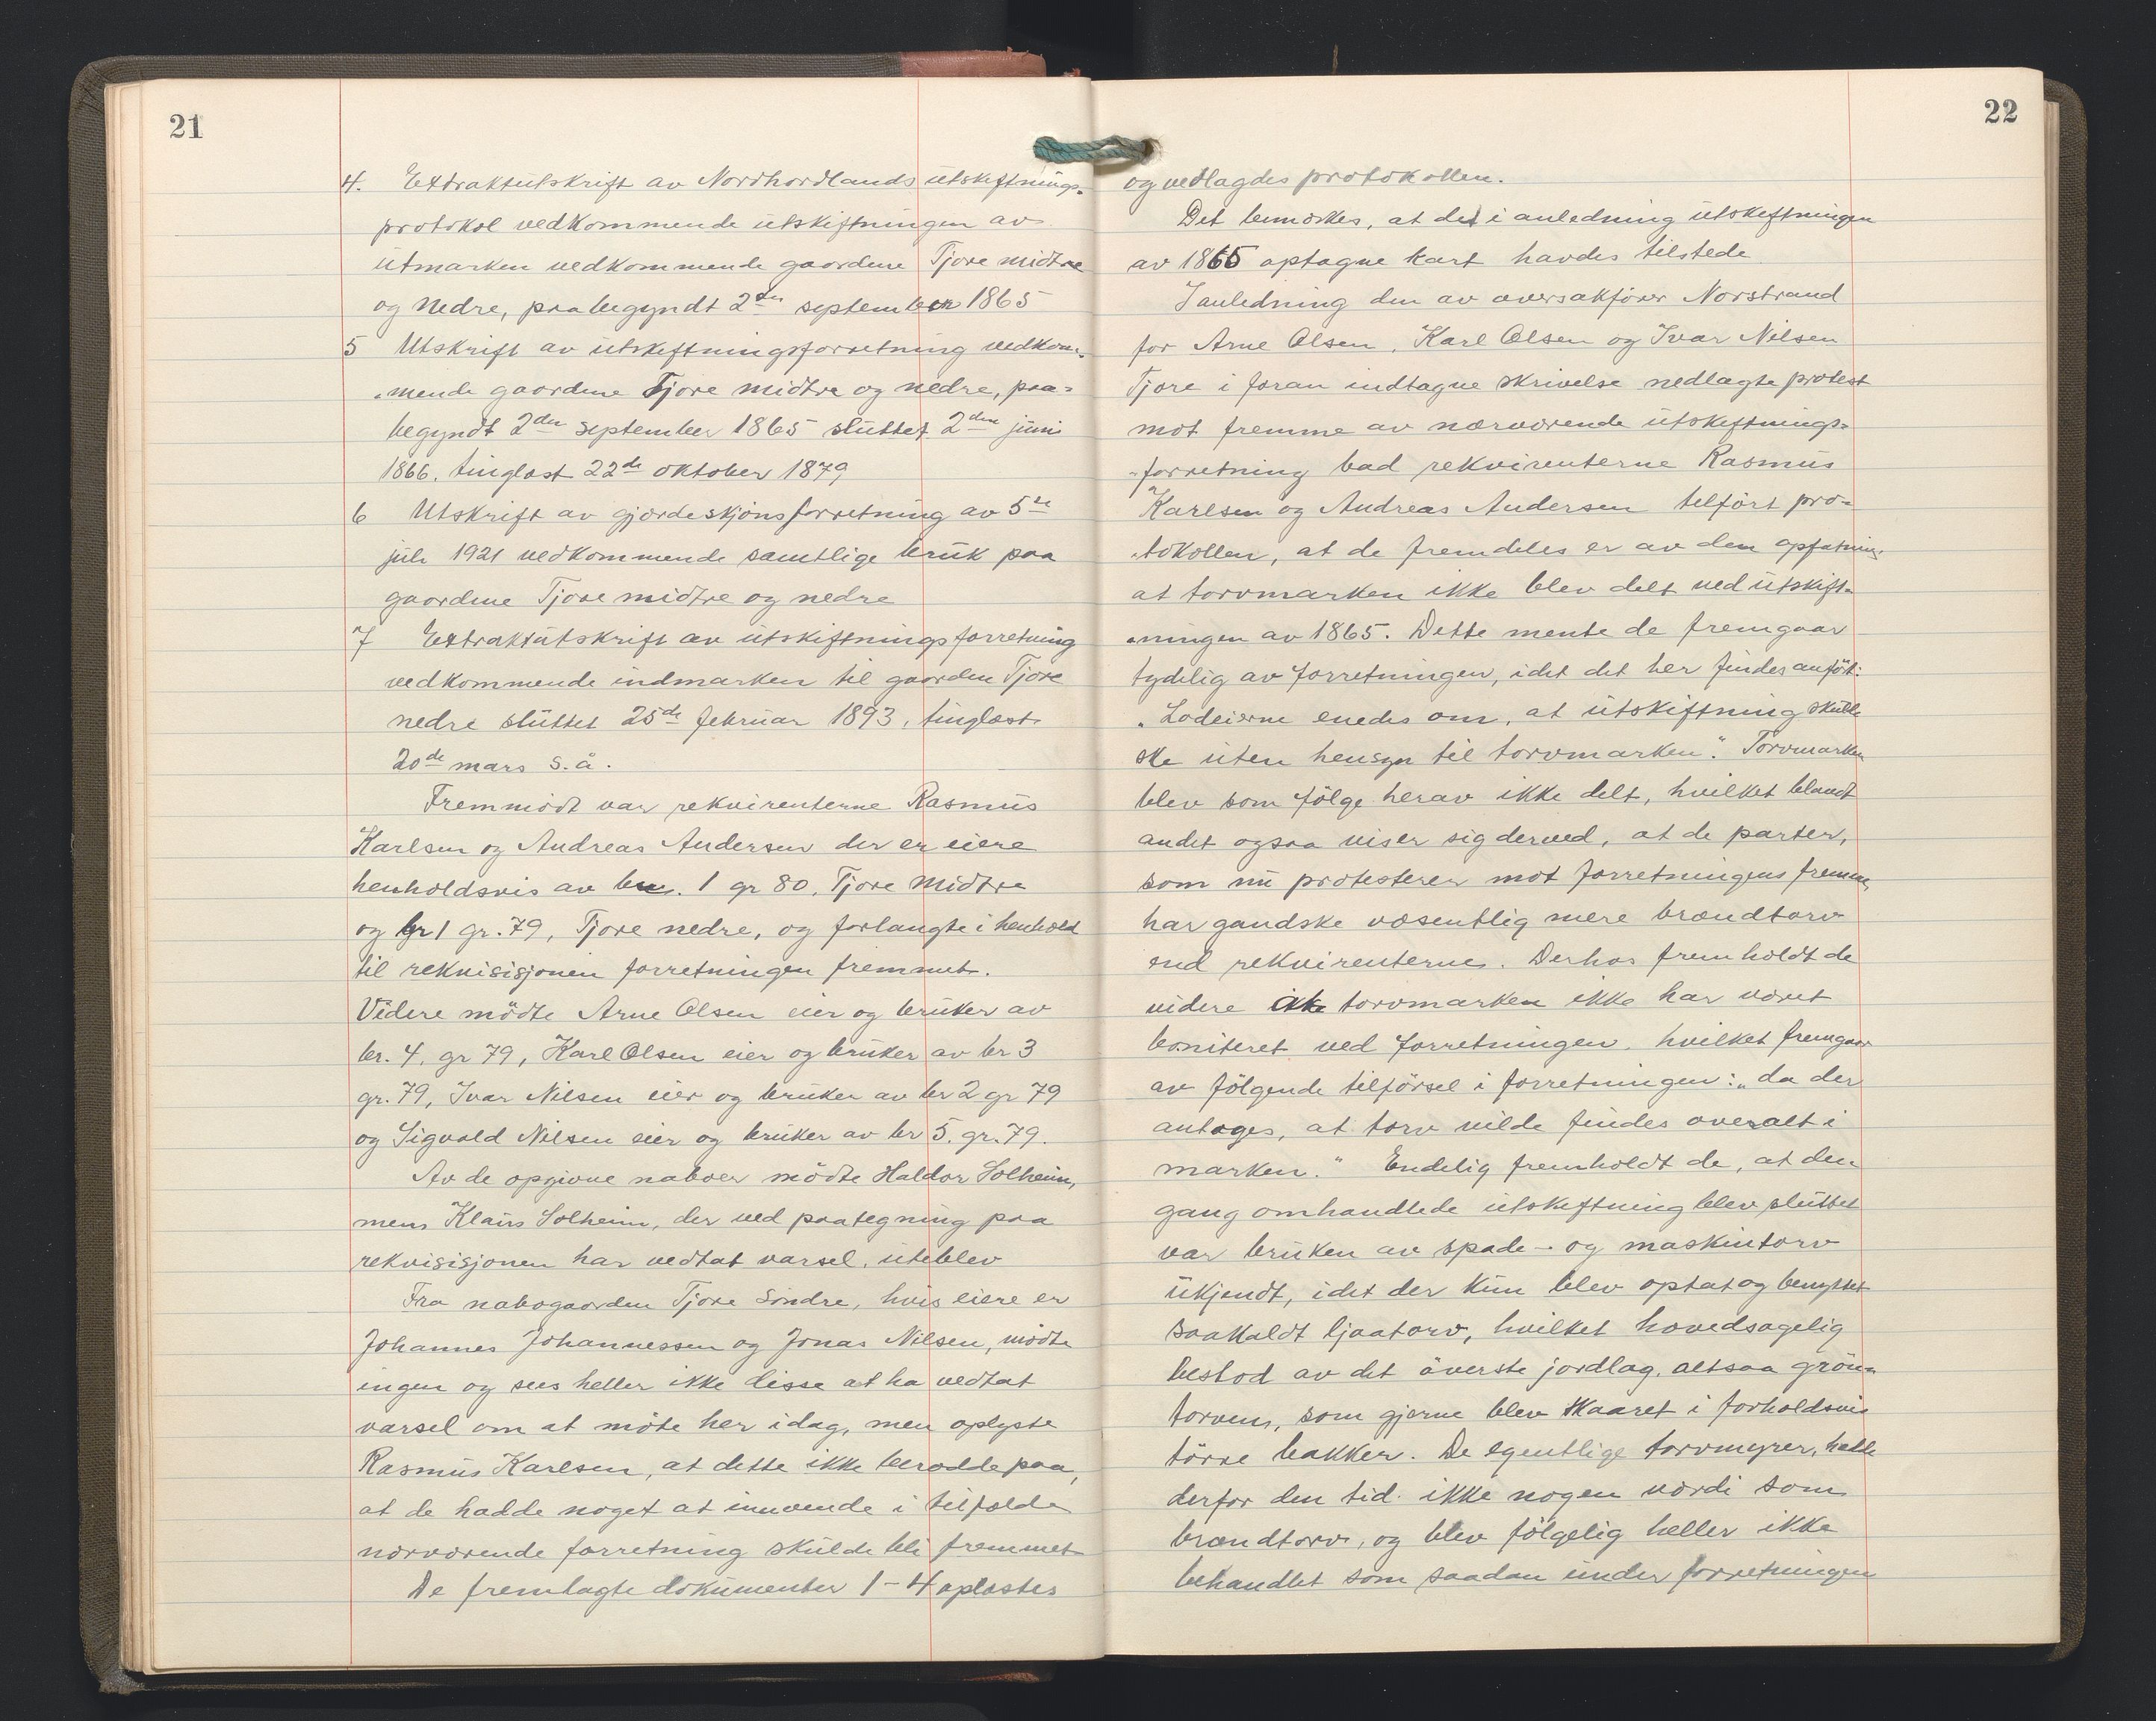 21
4. Extraktutskrift av Nordhordlands utskiftnings-
protokol vedkommende utskiftningen av
utmarken vedkommende gaardene Tjore midtre
og nedre, paabegyndt 2den september 1865
5 Utskrift av utskiftningsforretning vedkom-
mende gaardene Tjore midtre og nedre, paa-
begyndt 2den september 1865 sluttet 2den juni
1866. tinglæst 22de oktober 1879
6 Utskrift av gjærdeskjönsforretning av 5te
juli 1921 vedkommende samtlige bruk paa
gaardene Tjore midtre og nedre
7 Extraktutskrift av utskiftningsforretning
vedkommende indmarken til gaarden Tjore
nedre sluttet 25de februar 1893, tinglæst
20de mars s.å.
Fremmödt var rekvirenterne Rasmus
Karlsen og Andreas Andersen der er eiere
henholdsvis av br. 1 gr 80, Tjore midtre
og br 1 gr. 79, Tjore nedre, og forlangte i henhold
til rekvisisjonen forretningen fremmet.
Videre mödte Arne Olsen eier og bruker av
br. 4. gr 79, Karl Olsen eier og bruker av br 3
gr. 79, Ivar Nilsen eier og bruker av br 2 gr 79
og Sigvald Nilsen eier og bruker av br 5. gr. 79.
Av de opgivne naboer mödte Haldor Solheim,
mens Klaus Solheim, der ved paategning paa
rekvisisjonen har vedtat varsel, uteblev
Fra nabogaarden Tjore Söndre, hvis eiere er
Johannes Johannessen og Jonas Nilsen, mödte
ingen og sees heller ikke disse at ha vedtat
varsel om at möte her idag, men oplyste
Rasmus Karlsen, at dette ikke berodde paa,
at de hadde noget at innvende i tilfælde
nærværende forretning skulde bli fremmet
De fremlagte dokumenter 1-4 oplæstes
22
og vedlagdes protokollen.
Det bemærkes, at det i anledning utskiftningen
av 1865 optagne kart havdes tilstede
I anledning den av oversakförer Norstrand
for Arne Olsen, Karl Olsen og Ivar Nilsen
Tjore i foran indtagne skrivelse nedlagte protest
mot fremme av nærværende utskiftnings-
forretning bad rekvirenterne Rasmus
Karlsen og Andreas Andersen tilfört pro-
tokollen, at de fremdeles er av den opfatning,
at torvmarken ikke blev delt ved utskift-
ningen av 1865. Dette mente de fremgaar
tydelig av forretningen, idet det her findes anfört:
"Lodeierne enedes om, at utskiftning skulle
ske uten hensyn til torvmarken". Torvmarken
blev som fölge herav ikke delt, hvilket blandt
andet ogsaa viser sig derved, at de parter,
som nu protesterer mot forretningens fremme,
har gandske væsentlig mere brændtorv
end rekvirenterne. Derhos fremholdt de
videre at torvmarken ikke har været
boniteret ved forretningen, hvilket fremgaar
av fölgende tilförsel i forretningen: "da der
antages, at torv vilde findes overalt i
marken." Endelig fremholdt de, at den
gang omhandlede utskiftning blev sluttet
var bruken av spade- og maskintorv
ukjendt, idet der kun blev optat og benyttet
saakaldt ljaatorv, hvilket hovedsagelig
bestod av det överste jordlag, altsaa grön-
torven, som gjerne blev skaaret i forholdsvis
törre bakker. De egentlige torvmyrer, hadde
derfor den tid ikke nogen værdi som
brændtorv, og blev fölgelig heller ikke
behandlet som saadan under forretningen